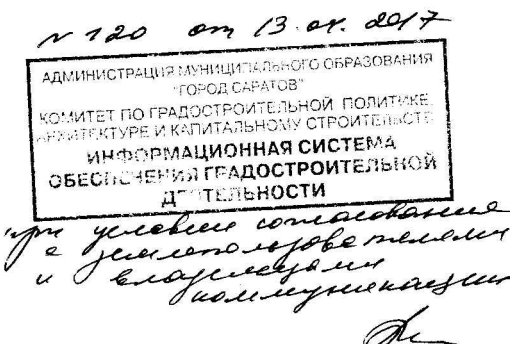 N 120 от 13.04.2017
АДМИНИСТРАЦИЯ МУНИЦИПАЛЬНОГО ОБРАЗОВАНИЯ
"ГОРОД САРАТОВ"
КОМИТЕТ ПО ГРАДОСТРОИТЕЛЬНОЙ ПОЛИТИКЕ,
АРХИТЕКТУРЕ И КАПИТАЛЬНОМУ СТРОИТЕЛЬСТВУ
ИНФОРМАЦИОННАЯ СИСТЕМА
ОБЕСПЕЧЕНИЯ ГРАДОСТРОИТЕЛЬНОЙ
ДЕЯТЕЛЬНОСТИ
при условии согласования
с землепользователями
и владельцами
коммуникаций